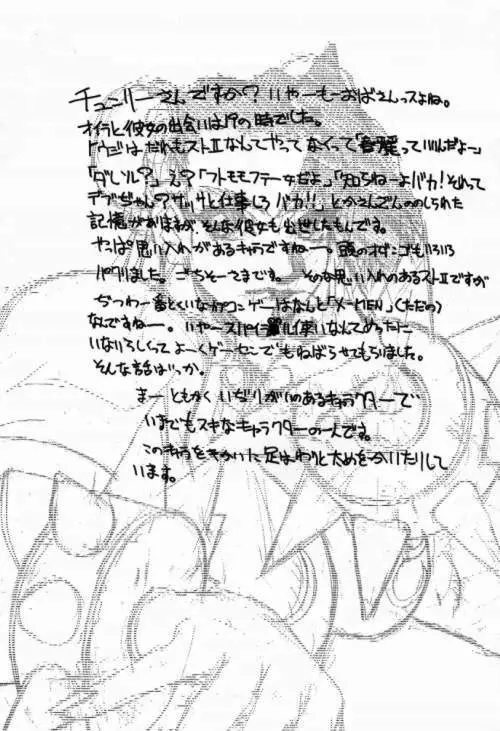 チュンリーさんですか?いやーもーおばさんっスよね。
オイラと彼女の出会いは19の時でした。
トウジはだれもストⅡなんてやってなくって「春麗っていいんだよー」
「だいソル?」え?「フトモモフテー女だよ」「知らねーよバカ!それって
デブぢゃん?サッサと仕事しろバカ!!」とかさんざんののしられた
記憶がありますが、そんな彼女も出世したもんです。
やっぱ思い入れがあるキャラですねー。頭のオダンゴもいろいろ
パクりました。ごちそーさまです。そのな思い入れのあるストⅡですが
ぢつわー番とくいなカプコンゲーはなんと「X-MEN」(ただの)
なんですねー。いやースパイラル使いなんてめったに
いないらしくってよーくゲーセンでもねばらせてもらいました。
そんな話はいっか。
まーともかくいぢりがいのあるキャラクターで
いまでもスキなキャラクターの一人です。
このキャラをキッカケに足はわりと太めをかいたりして
います。